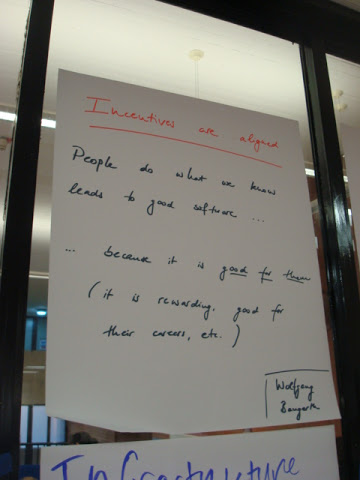 Incentives are aligned
People do what we know
leads to good software ...
... because it is good for them
(it is rewarding, good for
their careers, etc.)
Wolfgang
Bangerth
Infrastructure